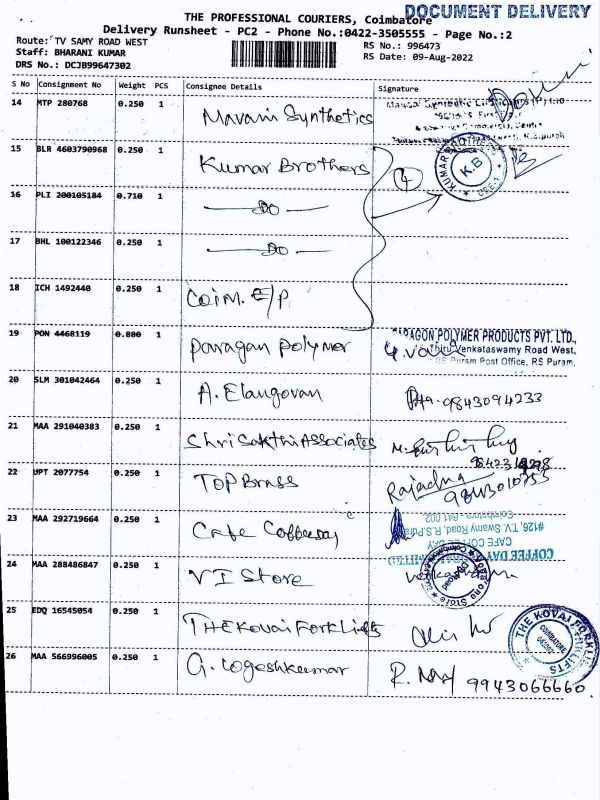 DOCUMENT DELIVERY
THE PROFESSIONAL COURIERS, Coimbatore
Delivery Runsheet - PC2 - Phone No.:0422-3505555 - Page No.:2
Route: TV SAMY ROAD WEST RS No.: 996473
Staff: BHARANI KUMAR RS Date: 09-Aug-2022
DRS No.: DCJB99647302
S No Consignment No Weight PCS Consignee Details Signature
14 MTP 280768 0.250 1 Mavani Synthetics
15 BLR 4603790968 0.250 1 Kumar Brothers 4 KUMAR BROTHERS K.B CBE-1
16 PLI 200105184 0.710 1 Do
17 BHL 100122346 0.250 1 Do
18 ICH 1492440 0.250 1 Coim. E/P
19 PON 4468119 0.880 1 Paragan Polymer PARAGON POLYMER PRODUCTS PVT. LTD.,
Thiruvenkataswamy Road West,
R S Puram Post Office, RS Puram,
20 SLM 301042464 0.250 1 A. Elangovan 9843094233
21 MAA 291040383 0.250 1 Shri Sakthi Associates
22 UPT 2077754 0.250 1 TOP Brass
23 MAA 292719664 0.250 1 Cafe Coffeeday
COFFEE DAY
CAFE COFFEE DAY
#126, T.V. Swamy Road, R.S.Puram
Coimbatore - 641 002
24 MAA 288486847 0.250 1 VI Store
25 EDQ 16545054 0.250 1 THE Kovai Forklifts THE KOVAI FORKLIFTS COIMBATORE
26 MAA 566996005 0.250 1 G. Logeshkumar 9943066660